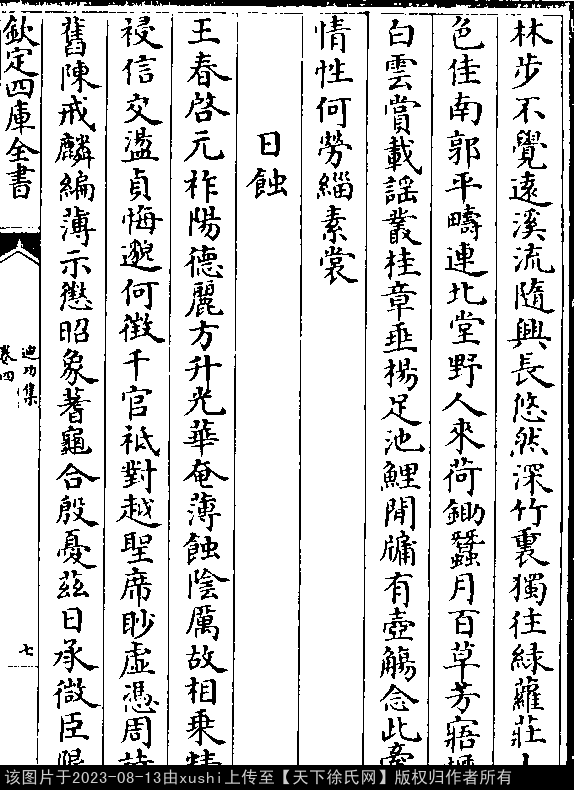 林步不覺遠溪流隨興長悠然深竹裏獨往綠蘿莊
色佳南郭平疇連北堂野人來荷鋤蠶月百草芳寤
白雲賞載謡叢桂章垂楊足池鯉閒牗有壺觴念此
情性何勞緇素裳
日蝕
王春啓元祚陽德麗方升光華奄薄蝕陰厲故相乗
祲信交盪貞悔邈何徴千官祗對越聖席眇虛憑周
舊陳戒麟編薄示懲昭象蓍龜合殷憂兹日承微臣
欽定四庫全書
迪功集
卷四
七
该图片于2023-08-13由xushi上传至【天下徐氏网】版权归作者所有